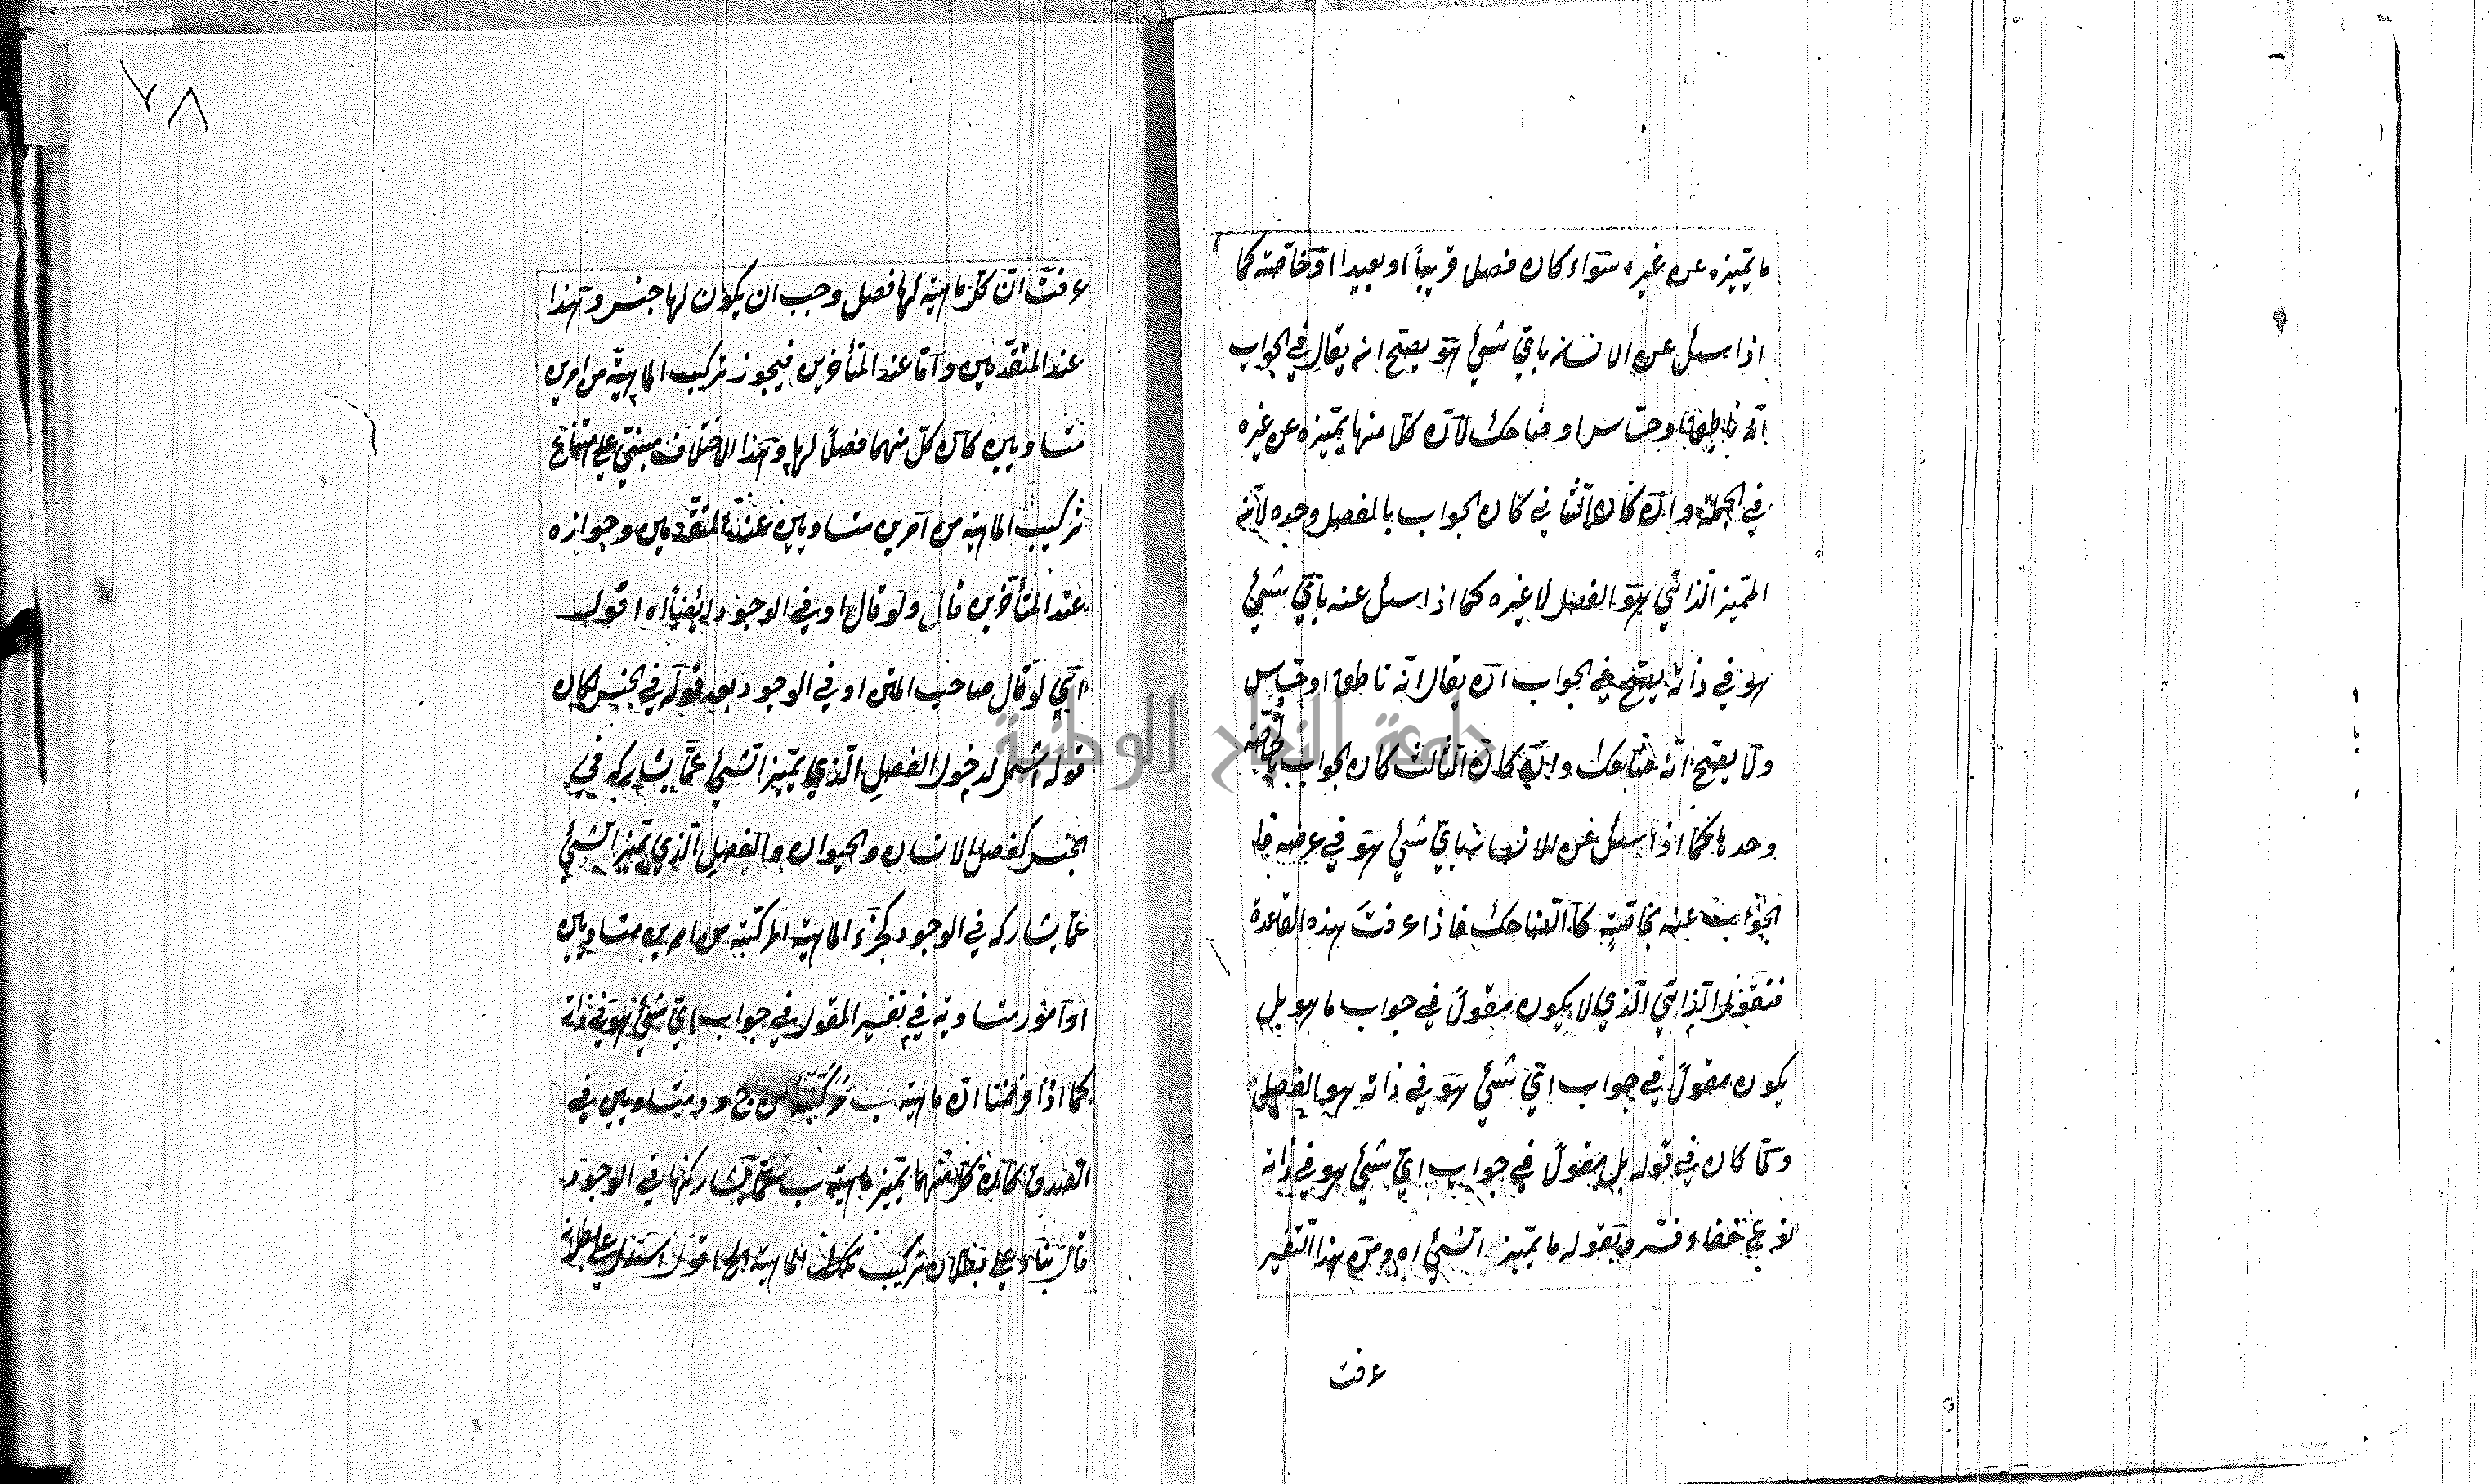 ما يميزه عن غيره سواء كان فصلا قريباً او بعيدا او خاصة كما
اذا سئل عن الانسان باي شيئ هو يصح انه يقال في الجواب
انه ناطق او حساس او ضاحك لان كلا منها يميزه عن غيره
في الجملة وان كان الثاني كان الجواب بالفصل وحده لانه
المميز الذاتي هو الفصل لا غيره كما اذا سئل عنه باي شيئ
هو في ذاته يصح في الجواب ان يقال انه ناطق او حساس
ولا يصح انه ضاحك وان كان الثالث كان الجواب بالخاصة
وحدها كما اذا سئل عن الانسان باي شيئ هو في عرضه
الجواب عنه بخاصته كالضاحك فاذا عرفت هذه القاعدة
فنقول الذاتي الذي لا يكون مقولاً في جواب ما هو بل
يكون مقولاً في جواب اي شيئ هو في ذاته هو الفصل
ولما كان في قوله بل مقولاً في جواب اي شيئ هو في ذاته
نوع خفاء فسره بقوله ما يميز الشيئ اه ومن هذا التفسير
عرفت
٢٨
عرفت ان كل ماهية لها فصل وجب ان يكون لها جنس وهذا
عند المتقدمين واما عند المتأخرين فيجوز تركيب الماهية من امرين
متساويين كان كل منهما فصلاً لها وهذا الاختلاف مبني على امتناع
تركيب الماهية من امرين متساويين عند المتقدمين وجوازه
عند المتأخرين قال ولو قال او في الوجود ايضاً اه اقول
اي لو قال صاحب المتن او في الوجود بعد قوله في الجنس لكان
قوله اشمل لدخول الفصل الذي يميز الشيئ عما يشاركه في
الجنس كفصل الانسان والحيوان والفصل الذي يميز الشيئ
عما يشاركه في الوجود كجزء الماهية المركبة من امرين متساويين
او امور متساوية في تفسير المقول في جواب اي شيئ هو في ذاته
كما اذا فرضنا ان ماهية ب مركبة من ج و د متساويين في
الصدق كان كل منهما يميز ماهية ب عما يشاركها في الوجود
قال بناء على بطلان تركيب تلك الماهية الخ اقول استدل على بطلانه
جامعة النجاح الوطنية